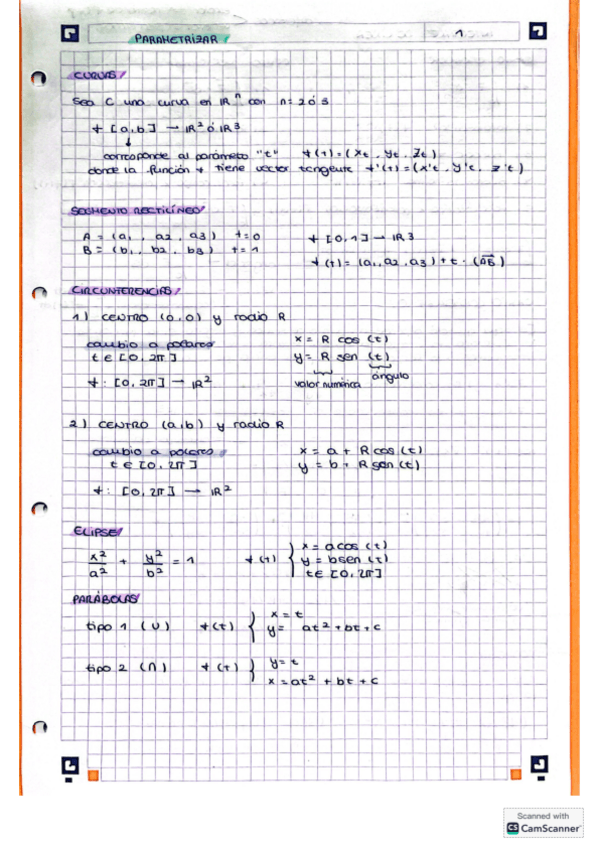 PARAMETRIZAR 1
CURVAS
Sea C una curva en IR^n con n=2 ó 3
f [a,b] → IR² ó IR³
↓
corresponde al parámetro "t" f(t)=(xt, yt, zt)
donde la función f tiene vector tangente f'(t)=(x't, y't, z't)
SEGMENTO RECTILÍNEO
A = (a1, a2, a3) t=0 f [0,1] → IR3
B = (b1, b2, b3) t=1
f(t)=(a1,a2,a3)+t·(AB)
CIRCUNFERENCIAS
1) CENTRO (0,0) y radio R
cambio a polares x = R cos (t)
t ∈ [0, 2π] y = R sen (t)
f: [0, 2π] → IR² valor numérico ángulo
2) CENTRO (a,b) y radio R
cambio a polares x = a + R cos (t)
t ∈ [0, 2π] y = b + R sen (t)
f: [0, 2π] → IR²
ELIPSE
x²/a² + y²/b² = 1 f(t) { x = a cos (t)
y = b sen (t)
t ∈ [0, 2π]
PARÁBOLAS
tipo 1 (∪) f(t) { x = t
y = at² + bt + c
tipo 2 (∩) f(t) } y = t
x = at² + bt + c
Scanned with
CS CamScanner